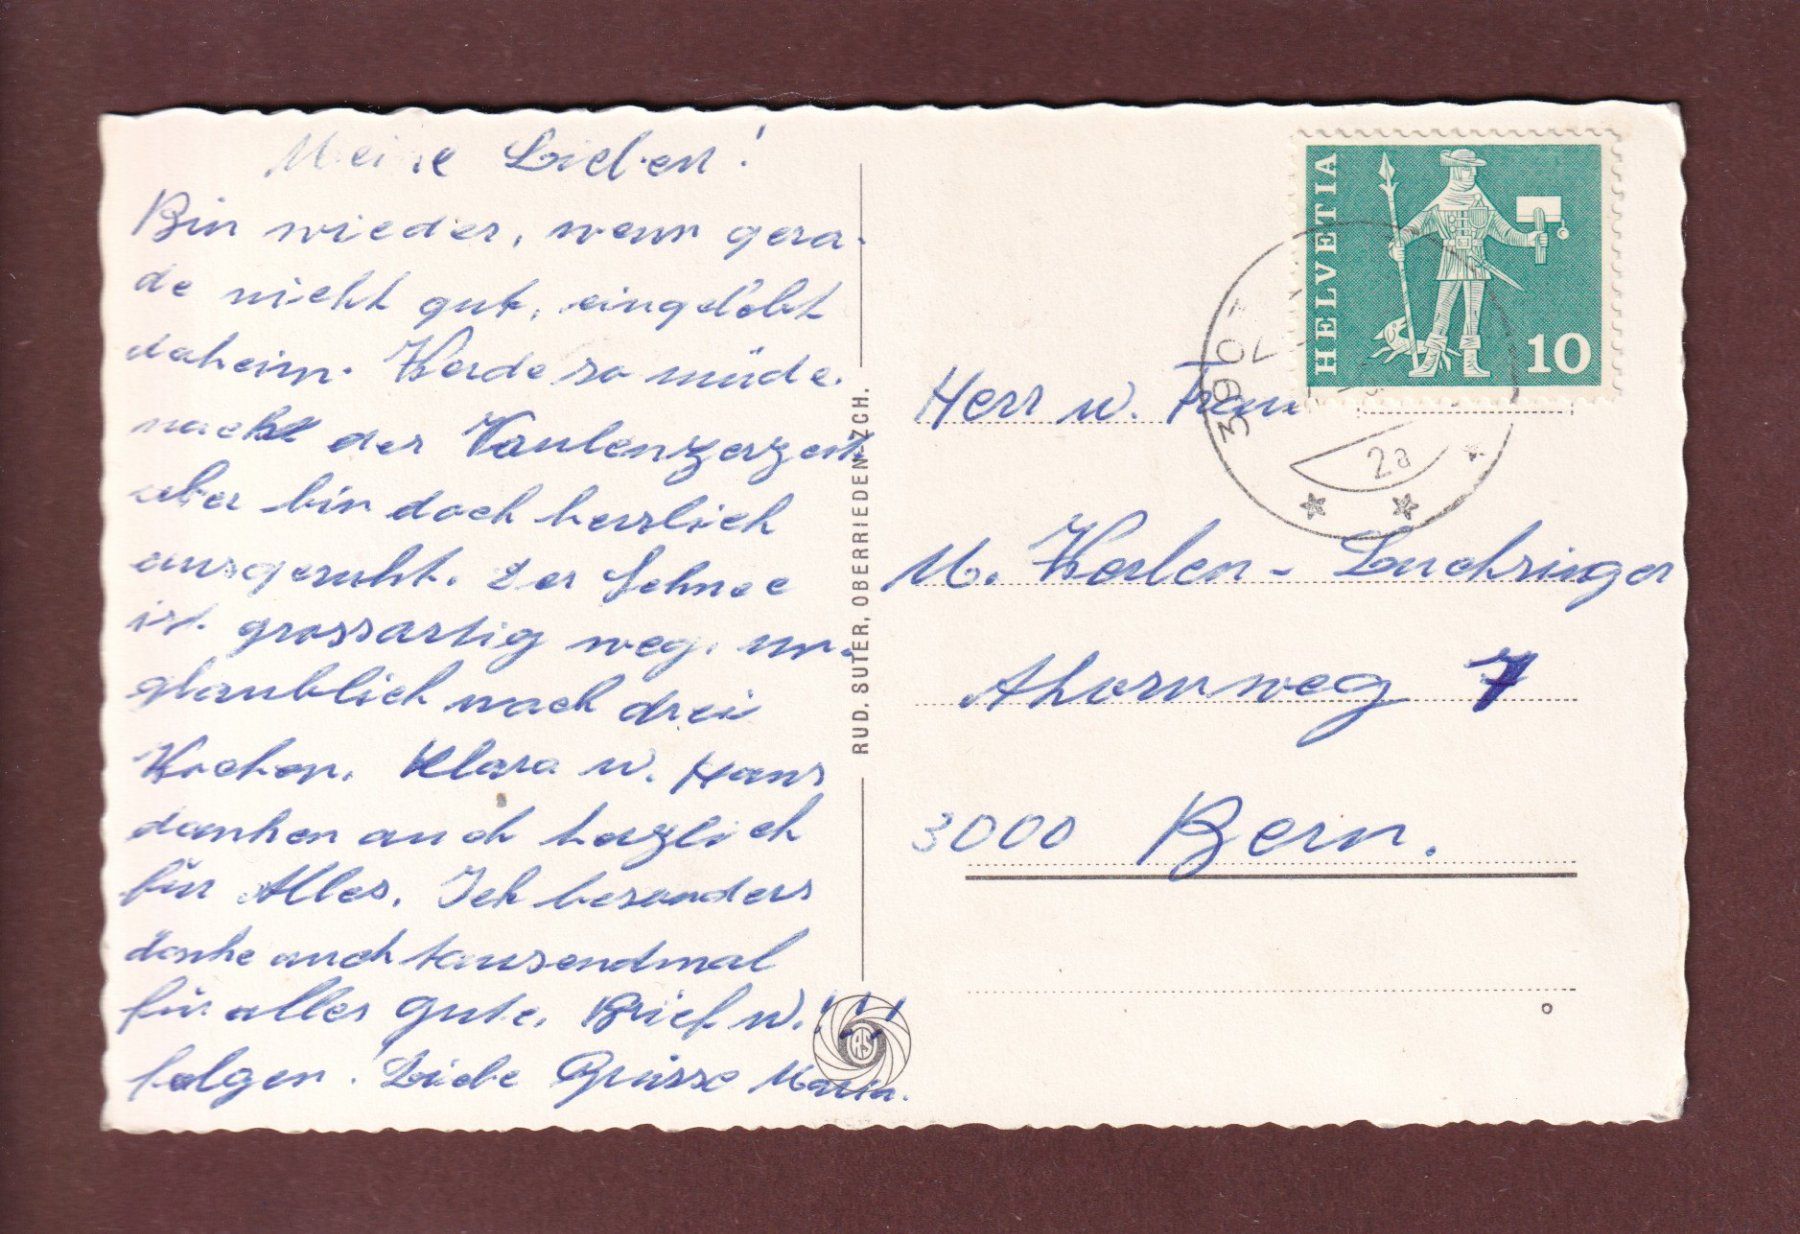 Meine Lieben!
Bin wieder, wenn gera-
de nicht gut, eingelebt
daheim. Werde so müde
nach der Faulenzerzeit
aber bin doch herrlich
ausgeruht. Der Schnee
ist grossartig weg, un-
glaublich nach drei
Wochen. Klara u. Hans
danken auch herzlich
für Alles. Ich besonders
danke auch tausendmal
für alles Gute. Brief u. !!!
folgen. Liebe Grüsse Maria.
RUD. SUTER, OBERRIEDEN-ZCH.
RS
HELVETIA
10
390
2a
Herr u. Frau
M. Werlen-Luchsinger
Ahornweg 7
3000 Bern.